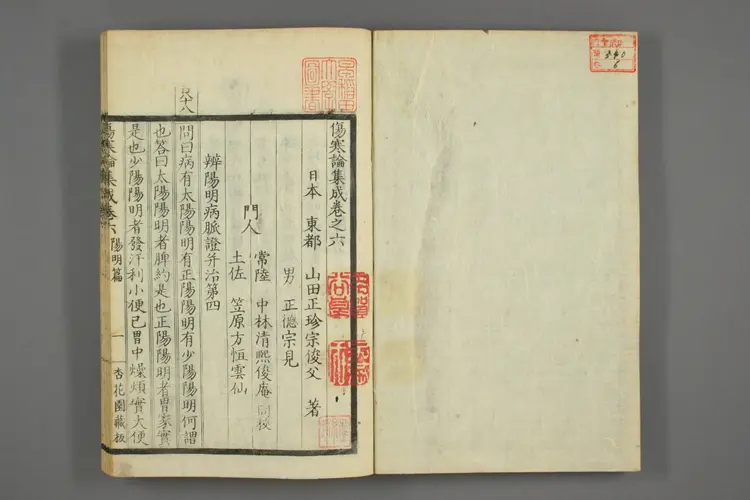 傷寒論集成卷之六
日本 東都 山田正珍宗俊父 著
男 正德宗見
門人
常陸 中林清熙俊庵 同校
土佐 笠原方恒雲仙
辨陽明病脈證并治第四
問曰病有太陽陽明有正陽陽明有少陽陽明何謂
也答曰太陽陽明者脾約是也正陽陽明者胃家實
是也少陽陽明者發汗利小便已胃中燥煩實大便
傷寒論集成卷六 陽明篇 一 杏花園藏板
早稻田大學圖書